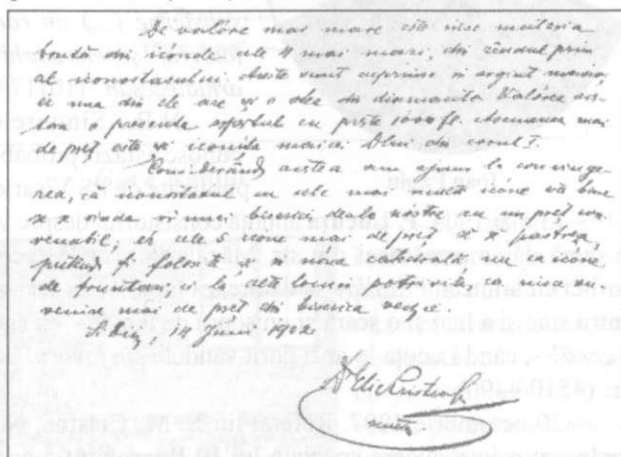 De valore mai mare este nesc materia
brută din icónele cele 4 mai mari, din rêndul prim
al iconostasului. Aceste sunt cuprinse în argint
și una din ele are și o stea din diamante. Valórea
o presenta aportul cu priste fl. Asemenea mai
de preț este și iconița maicei Dlui din cornul I.
Considerând acestea am ajuns la convinge-
rea, că iconostasul cu cele mai multe icóne să bine
s'a vinde vr'unei biserici de ale nóstre cu un preț con-
venabil; ér cele 5 icóne mai de preț să se pastreze,
putênd fi folosite în nóua catedrală nu ca icóne
de frunte, ci la alte locuri potrivite, ca nisce su-
venire mai de preț din biserica vechie.
Sibiiu, 14 Juni 1902.
Dr Elie Cristea